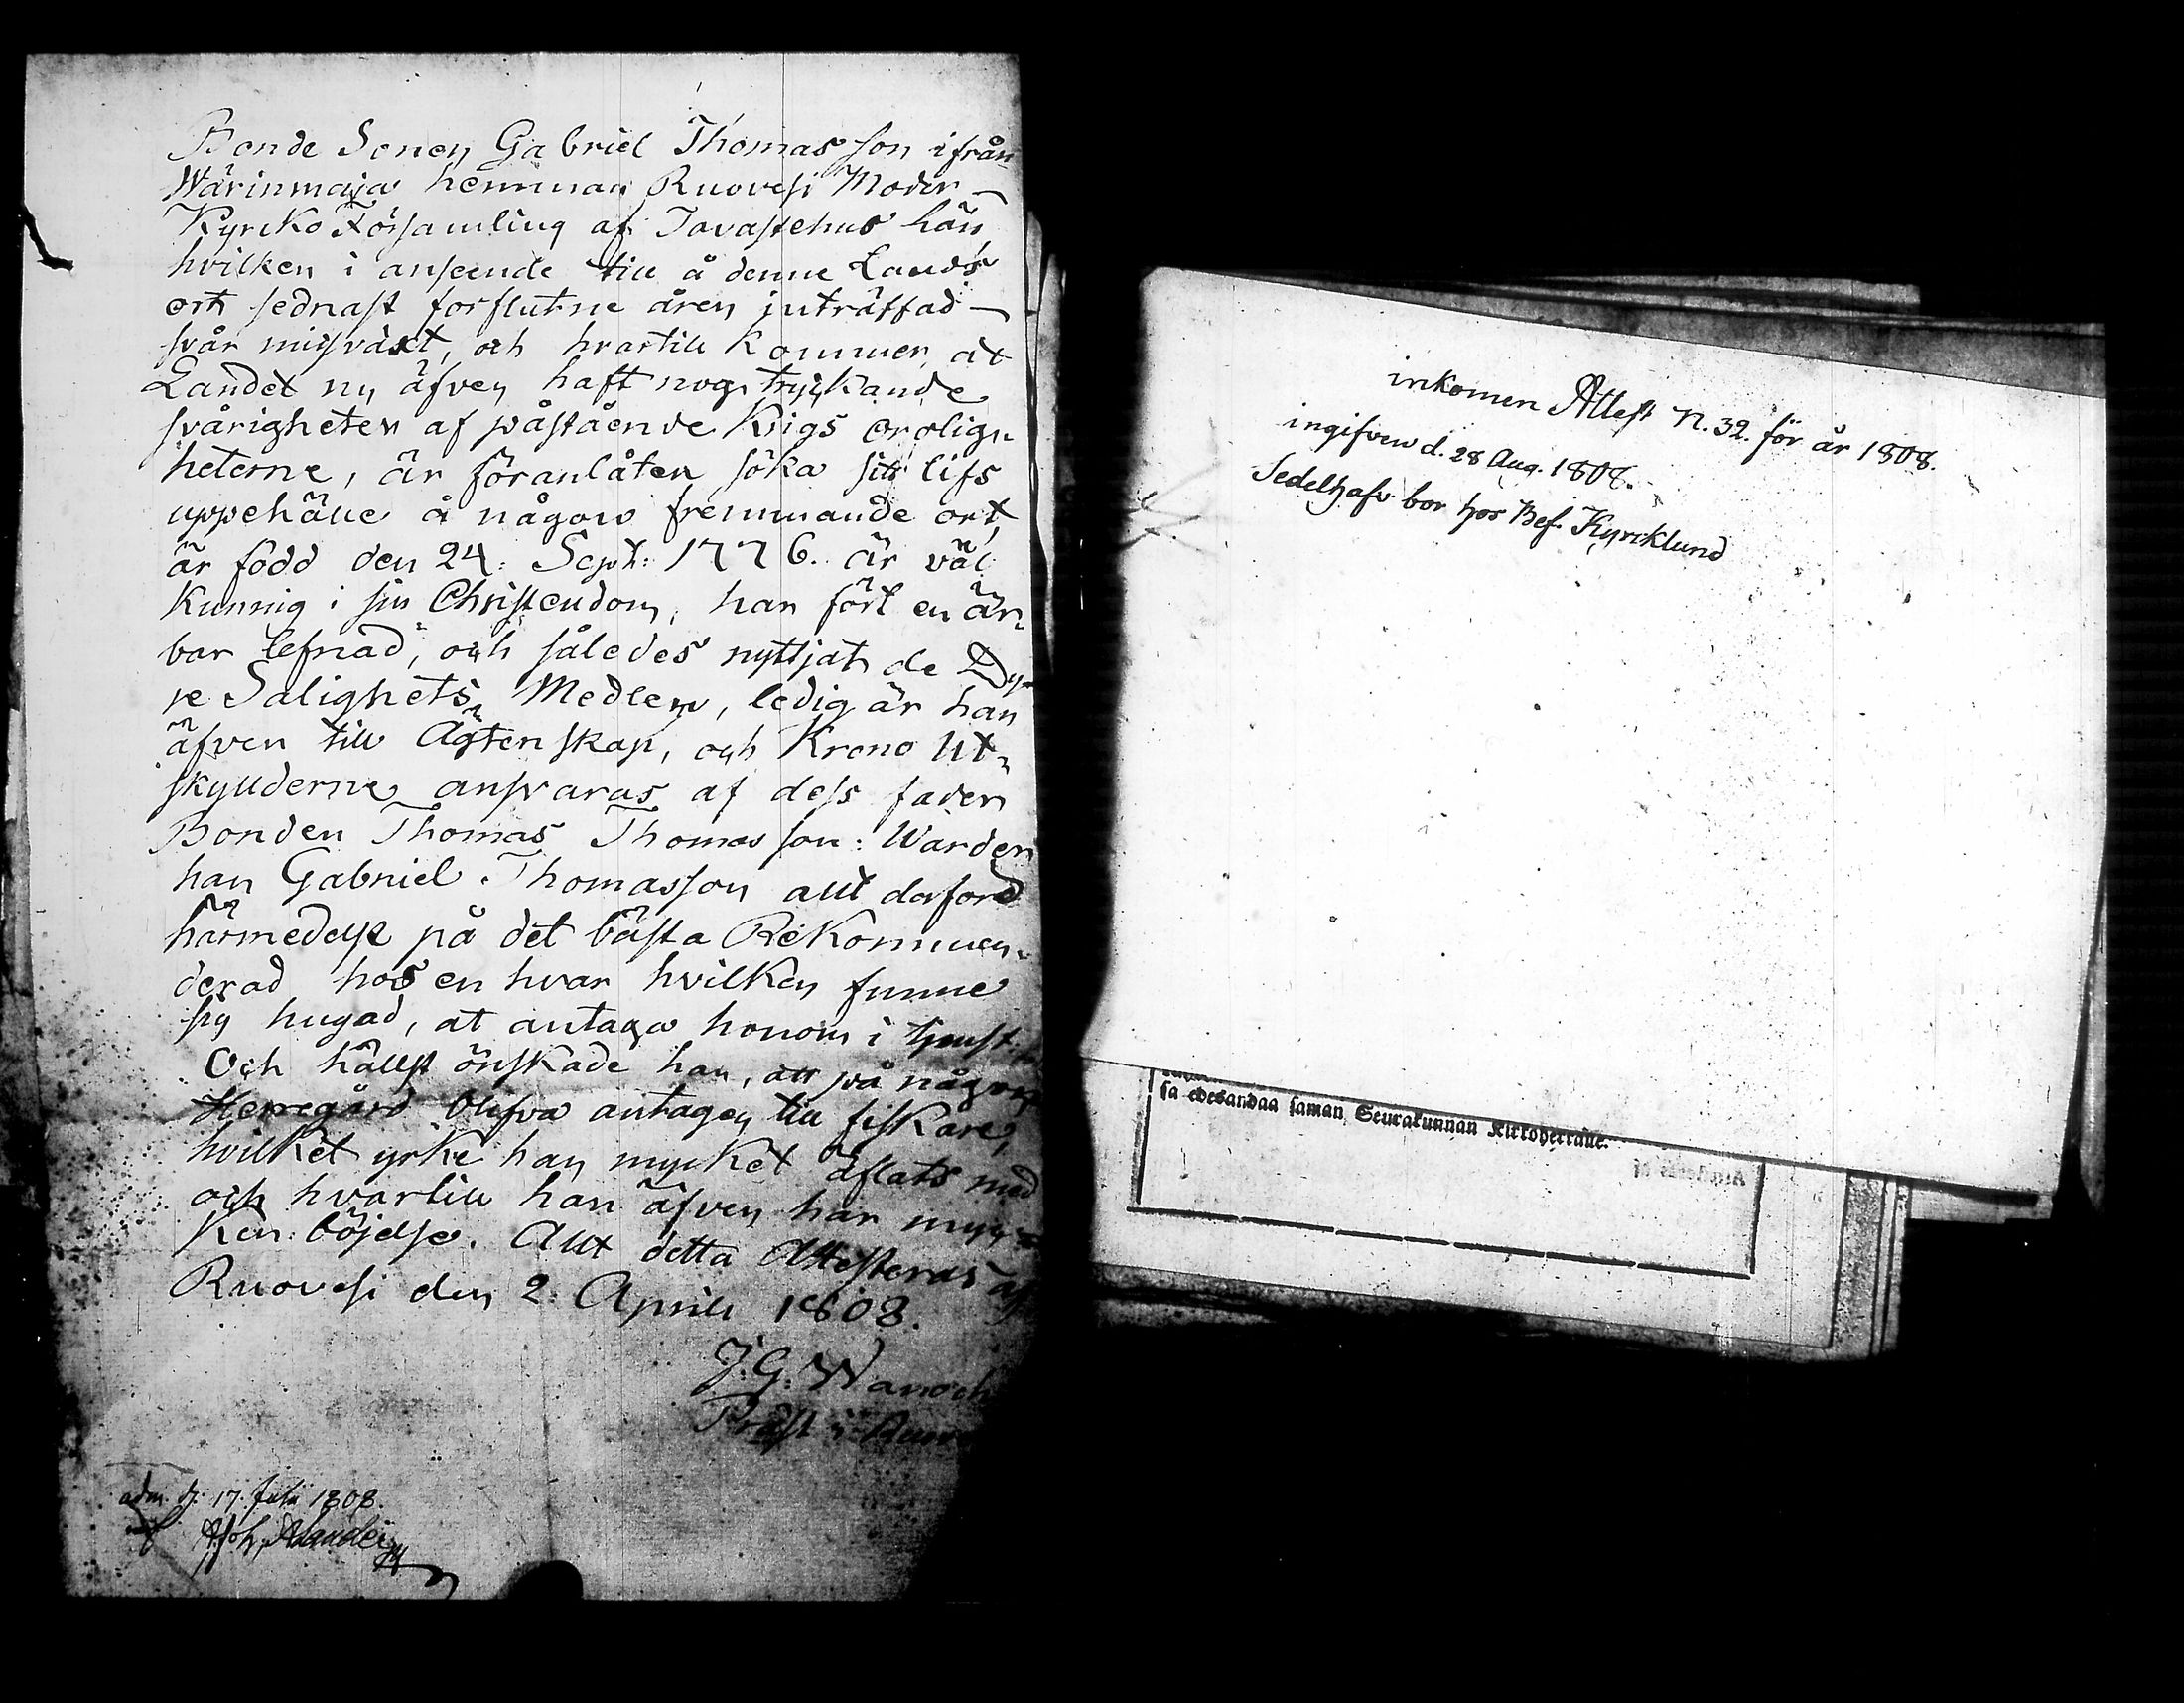 Bonde Sonen Gabriel Thomas son ifrån
Wärinmaja hemman Ruovesi Moder
Kyrcko Församling af Tavastehus län
hvilken i anseende till å denne Lands
ort sednast forflutne åren inträffad
svår missväxt, och hvartill kommer at
Landet nu äfven haft nog tryckande
svårigheter af påstående Krigs orolig-
heterne, är föranlåten söka sitt lifs
uppehälle å någon fremmande ort,
är född den 24: Sept: 1776. är väl
kunnig i sin Christendom, har fört en är-
bar lefnad, och således nyttjat de Dy-
re Salighets Medlen, ledig är han
äfven till Ägtenskap, och Krono Ut-
skylderne ansvaras af dess fader
Bonden Thomas Thomasson: Warder
han Gabriel Thomasson allt derföre
härmedelst på det bästa Rekommen-
derad hos en hvar hvilken funne
sig hugad, at antaga honom i tjenst
Och hällst önskade han, att på någon
Herregård blifva antagen till fiskare,
hvilket yrke han mycket
och hvartill han äfven har myc-
ken böjelse. Allt detta Attesteras af
Ruovesi den 2: Aprill 1808.
J: G: Wanoch
Prost i Ruov
adm. d. 17. Juli 1808.
inkomen Attest N. 32. för år 1808.
ingifven d. 28 Aug. 1808.
Sedelhafv. bor hos Bef. Kyrcklund
sa edesandaa saman Seurakunnan Kirkoherralle.